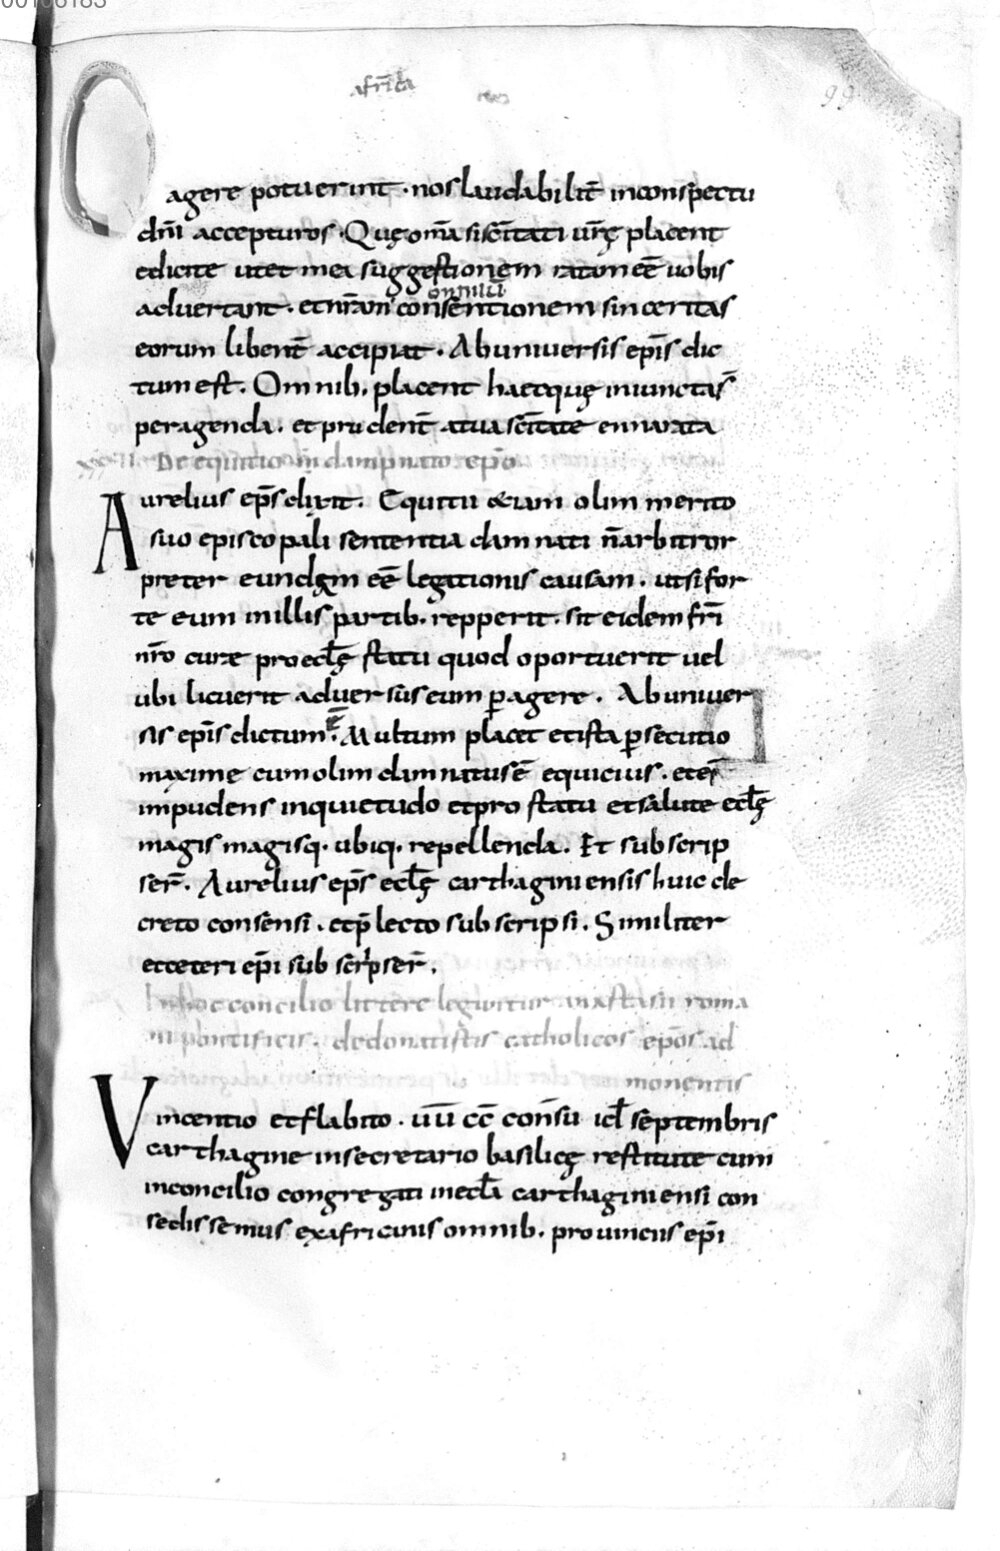 00106183
africa
99
agere potuerint · nos laudabilit̄ inconspectu
dn̄i accepturos · Quę om̄a si sc̄itati ur̄ę placent
edicite utet mea suggestionem ratam eē uobis
omniū
aduertant · et nr̄am consentionem sinceritas
eorum libent̄ accipiat · Ab uniuersis ep̄is dic
tum est · Omnib · placent haec quę iniunctas̄
peragenda · et prudent̄ atua sc̄itate enarrata
De equitio in dampnato ep̄o
Aurelius ep̄s dixit · Equitii etiam olim merito
suo episcopali sententia damnati n̄arbitror
preter eundem eē legationis causam · ut si for
te eum in illis partib · repperit · sit eidem fr̄i
nr̄o curae pro ecl̄ę statu quod oportuerit uel
ubi licuerit aduersus eum p̱agere · Ab uniuer
sis ep̄is dictum ē · Multum placet et ista p̱secutio
maxime cum olim damnatus ē equicius · et ei̅
impudens inquietudo et pro statu et salute ecl̄ę
magis magisq · ubiq · repellenda · Et subscrip
ser̄ · Aurelius ep̄s ecl̄ę carthaginiensis huic de
creto consensi · et p̄lecto subscripsi · Similiter
et ceteri ep̄i subscripser̄ ·
In hoc concilio litterę leguntur anastasii roma
ni pontificis · de donatistis catholicos ep̄os ad
monentis
Vincentio et flabito · uū cc̄ con̄su id̄ septembris
carthagine in secretario basilicę restitute cum
in concilio congregati in ecl̄a carthaginiensi con
sedissemus ex africanis omnib · prouinciis ep̄i